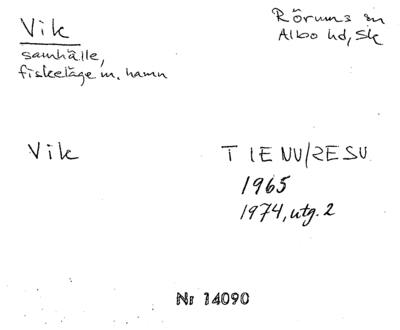 Vik
samhälle,
fiskeläge m. hamn
Rörums sn
Albo hd, Sk
Vik
T IENU/RESU
1965
1974, utg. 2
Nr 14090